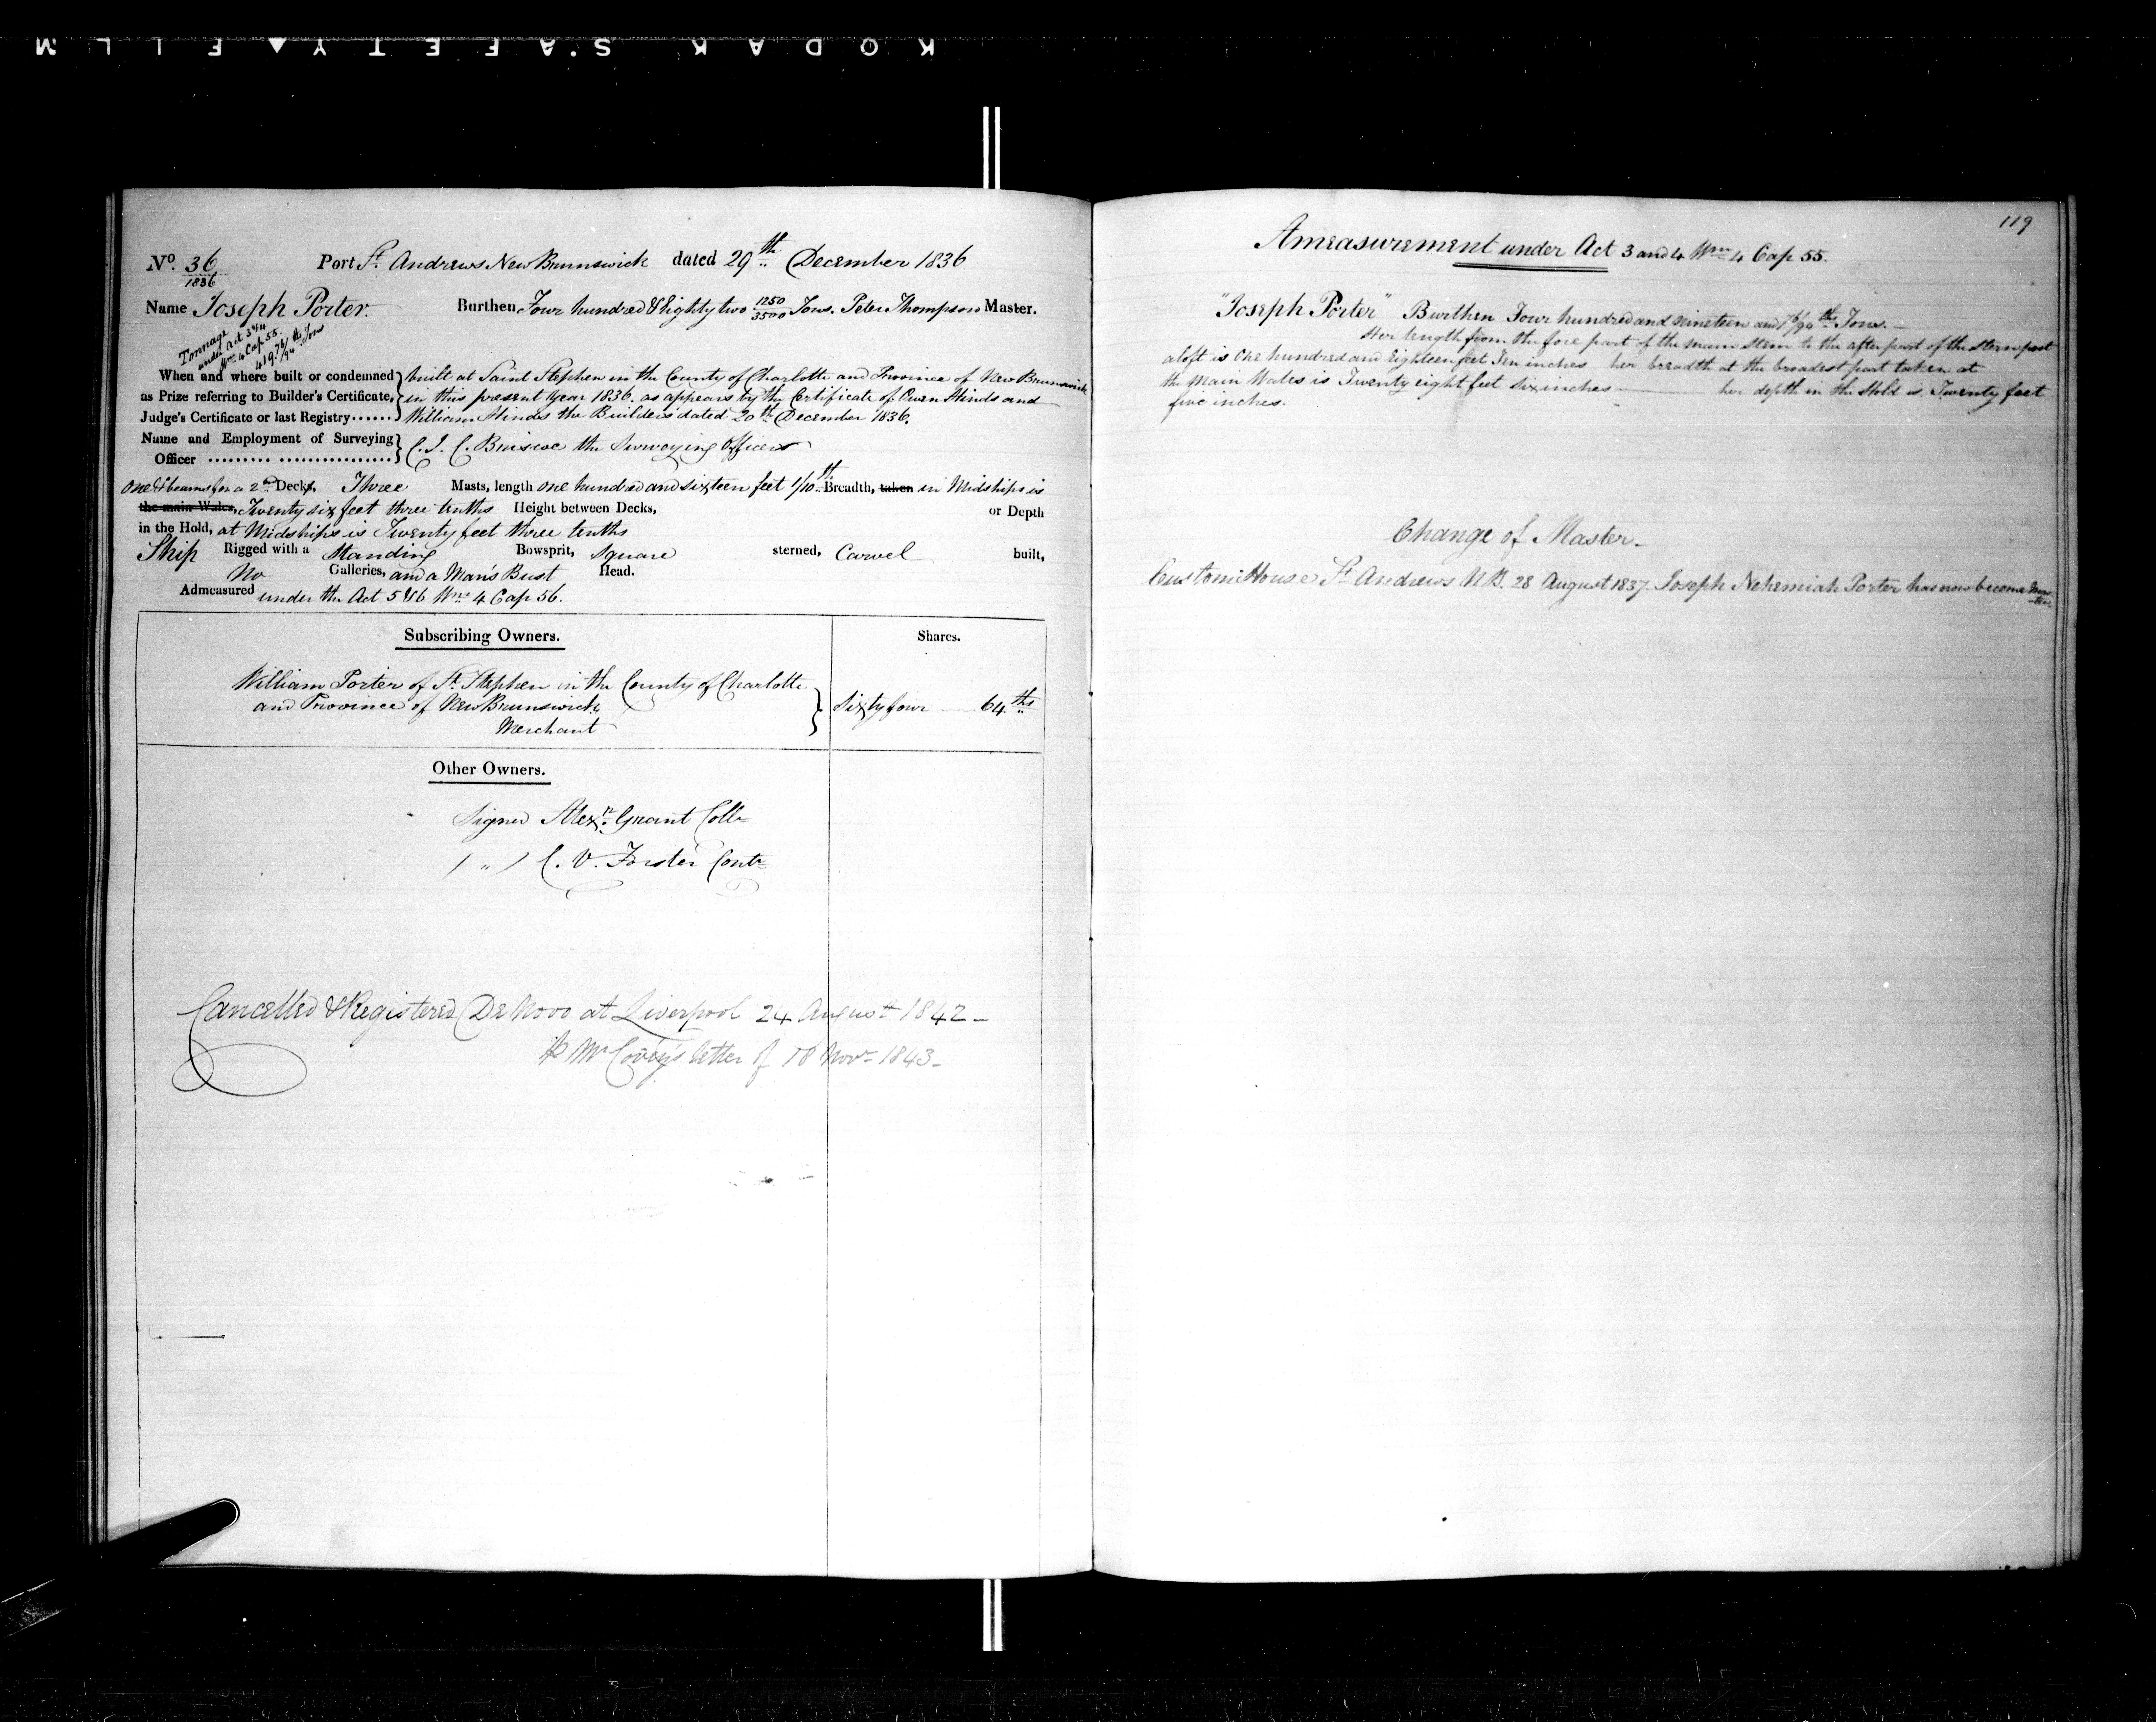 KODAK SAFETY FILM
No. 36
1836
Port St. Andrews New Brunswick dated 29th December 1836
Name Joseph Porter. Burthen Four hundred & Eighty two 1250/3500 Tons. Peter Thompson Master.
Tonnage
under Act 3 & 4
Wm 4 Cap 55.
419 76/94ths Tons
When and where built or condemned built at Saint Stephen in the County of Charlotte and Province of New Brunswick
as Prize referring to Builder's Certificate, in this present Year 1836. as appears by the Certificate of Owen Hinds and
Judge's Certificate or last Registry...... William Hinds the Builders dated 20th December 1836.
Name and Employment of Surveying
Officer ......... ................. C. J. C. Briscoe the Surveying Officer
One & beams for a 2nd Decks, Three Masts, length one hundred and sixteen feet 1/10th Breadth, taken in Midships is
the main Wales, Twenty six feet three tenths Height between Decks, or Depth
in the Hold, at Midships is Twenty feet three tenths
Ship Rigged with a Standing Bowsprit, Square sterned, Carvel built,
No Galleries, and a Man's Bust Head.
Admeasured under the Act 5 & 6 Wm 4 Cap 56.
Subscribing Owners. Shares.
William Porter of St. Stephen in the County of Charlotte
and Province of New Brunswick Sixty four 64ths
Merchant
Other Owners.
Signed Alexr. Grant Collr
( " ) C. V. Forster Contr
Cancelled & Registered De Novo at Liverpool 24 August 1842 -
Mr Covey's letter of 18 Novr 1843 -
119
Ameasurement under Act 3 and 4 Wm 4 Cap 55.
"Joseph Porter" Burthen Four hundred and nineteen and 76/94ths Tons. -
Her length from the fore part of the main Stem to the after part of the Stern post
aloft is One hundred and Eighteen feet Ten inches her breadth at the broadest part taken at
the Main Wales is Twenty eight feet six inches her depth in the Hold is Twenty feet
five inches.
Change of Master -
Custom House St. Andrews N.B. 28 August 1837. Joseph Nehemiah Porter has now become Mas-
ter.